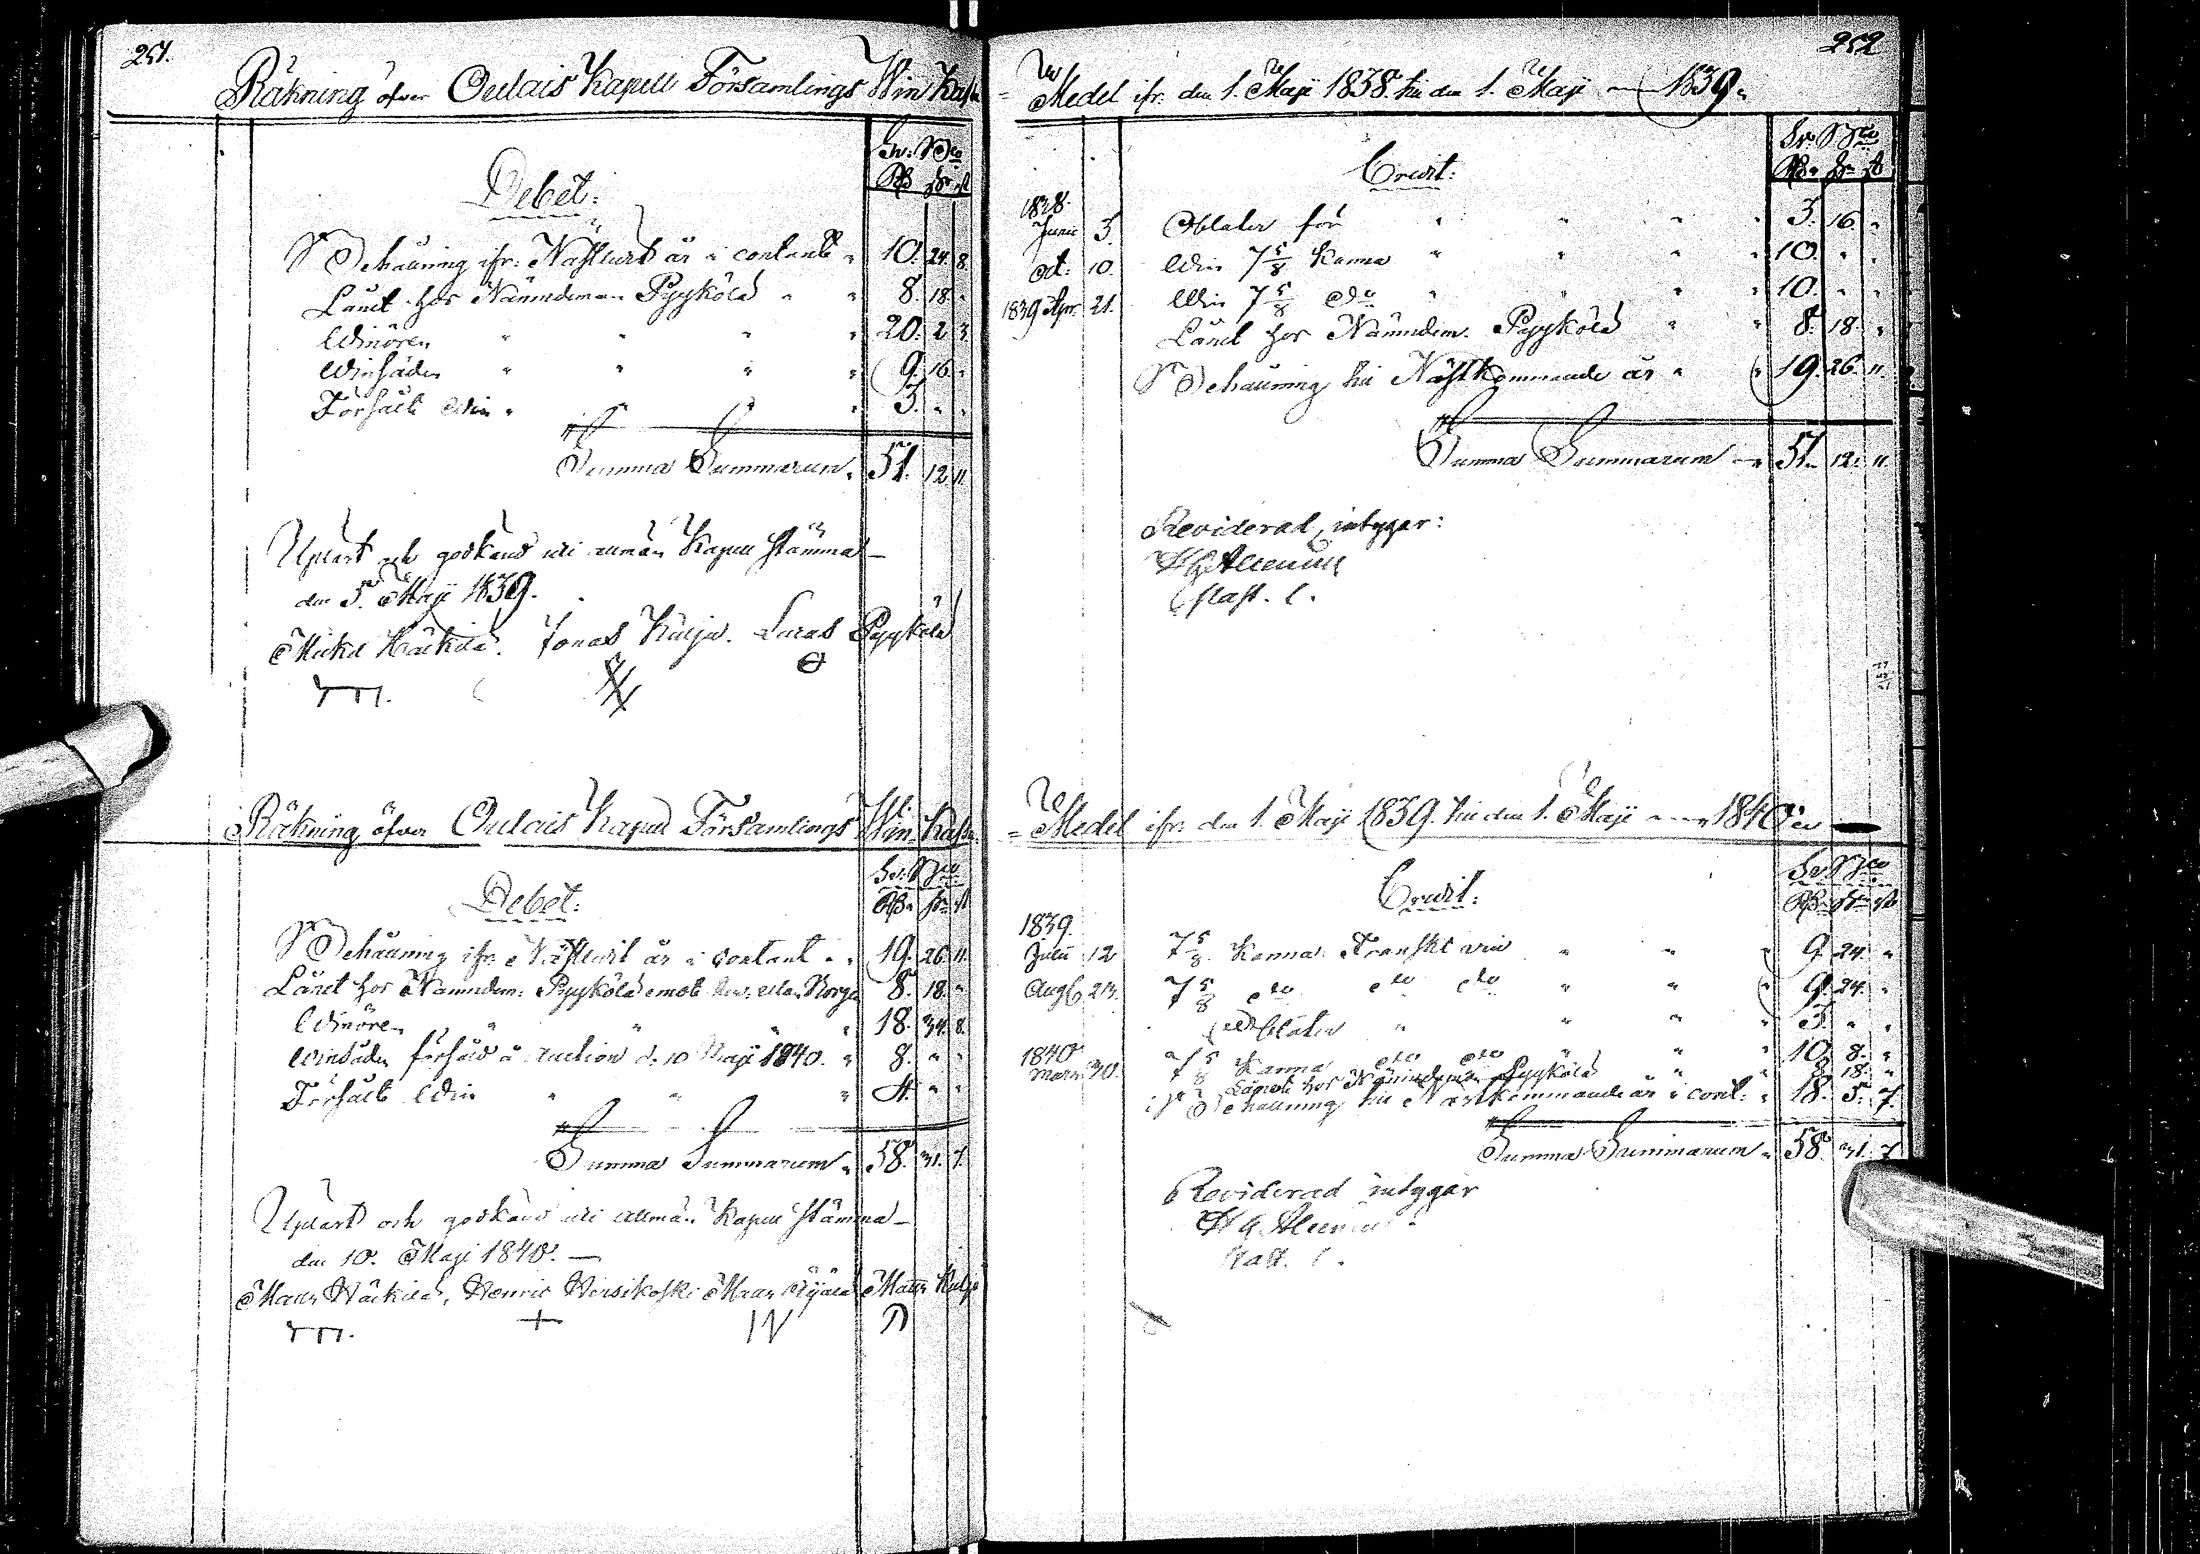 251.
Räkning öfver Oulais Kapell Församlings Win Kassa
Debet:
Sv: R Sco
Rß sk r
Behållning ifr: Nästleut år i contant " 10. 24. 8.
Lånt hos Nämndeman Pyykölä " " 8. 18. "
Winören " " " " 20. 2. 3.
Winsäden " " " " 9. 16. "
Försålt Win " " " 3. " "
Summa Summarum. 51. 12. 11.
Upläst och godkänd uti allmän Kapell stämma
den 5. Maji 1839.
Mickel Häikilä. Jonas Kulju. Laras Pyykölä
Räkning öfver Oulais Kapell Församlings Win Kassa
Debet:
Behållning ifr: Nästleut år i contant " " 19. 26. 11.
Lånt hos Nämndem: Pyykölä emot Borgen 8. 18. "
Winören " " " 18. 34. 8.
Winsäden försåld å auction d. 10 Maji 1840. " 8. " "
Försålt Win " " " 4. " "
Summa Summarum " 58. 31. 7.
Upläst och godkänd uti allmän Kapell stämma
den 10. Maji 1840.
Matts Häikilä, Henric Matts Matts Kulju
+ N
252
= Medel ifr: den 1. Maji 1838. till den 1. Maji 1839.
Credit:
1838.
Junii 3. Oblater för " " " " 3. 16. "
Oct: 10. Win 7 5/8 Kanna " " " " 10. " "
1839 Apr. 21. Win 7 5/8 do " " " " 10. " "
Lånt hos Nämndem. Pyykölä " " 8. 18. "
Behållning till Nästkommande år " " 19. 26. 11.
Summa Summarum 51. 12. 11.
Reviderad, intygar:
= Medel ifr: den 1. Maji 1839. till den 1. Maji 1840
Credit:
1839.
Julii 12 7 5/8 Kannor Franskt vin " " " 9. 24. "
Aug 23. 7 5/8 do do do " " " 9. 24. "
Oblater " " " 3. " "
1840
Mars 30. 7 5/8 Kanna do do " " " 10. 8. "
Lånt hos Nämndeman Pyykölä " " 8. 18. "
Behållning till Nästkommande år i cont: " 18. 5. 7.
Summa Summarum " 58. 31. 7
Reviderad intygar